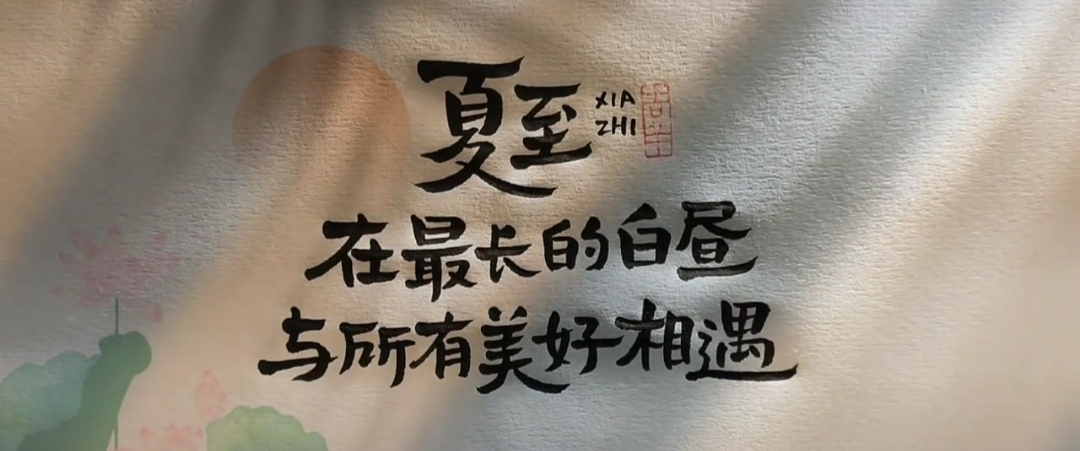 夏至
XIA
ZHI
在最长的白昼
与所有美好相遇